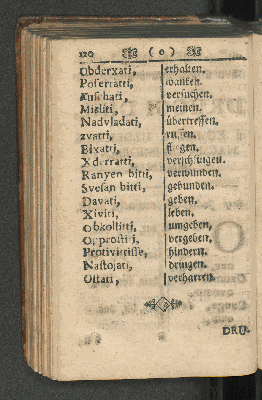 120 ( 0 )
Obderxati, erhalten.
Poserratti, wancken.
Kuschati, versuchen.
Misliti, meinen.
Nadvladati, übertreffen.
zvatti, ruffen.
Bixatti, fliegen.
Xderratti, verschlingen.
Ranyen bitti, verwunden.
Svesan bitti, gebunden.
Davati, geben.
Xiviti, leben.
Obkolitti, umgeben,
Opprostiti, vergeben.
Protivittisse, hindern.
Nastojati, dringen.
Ostati, verharren.
DRU-